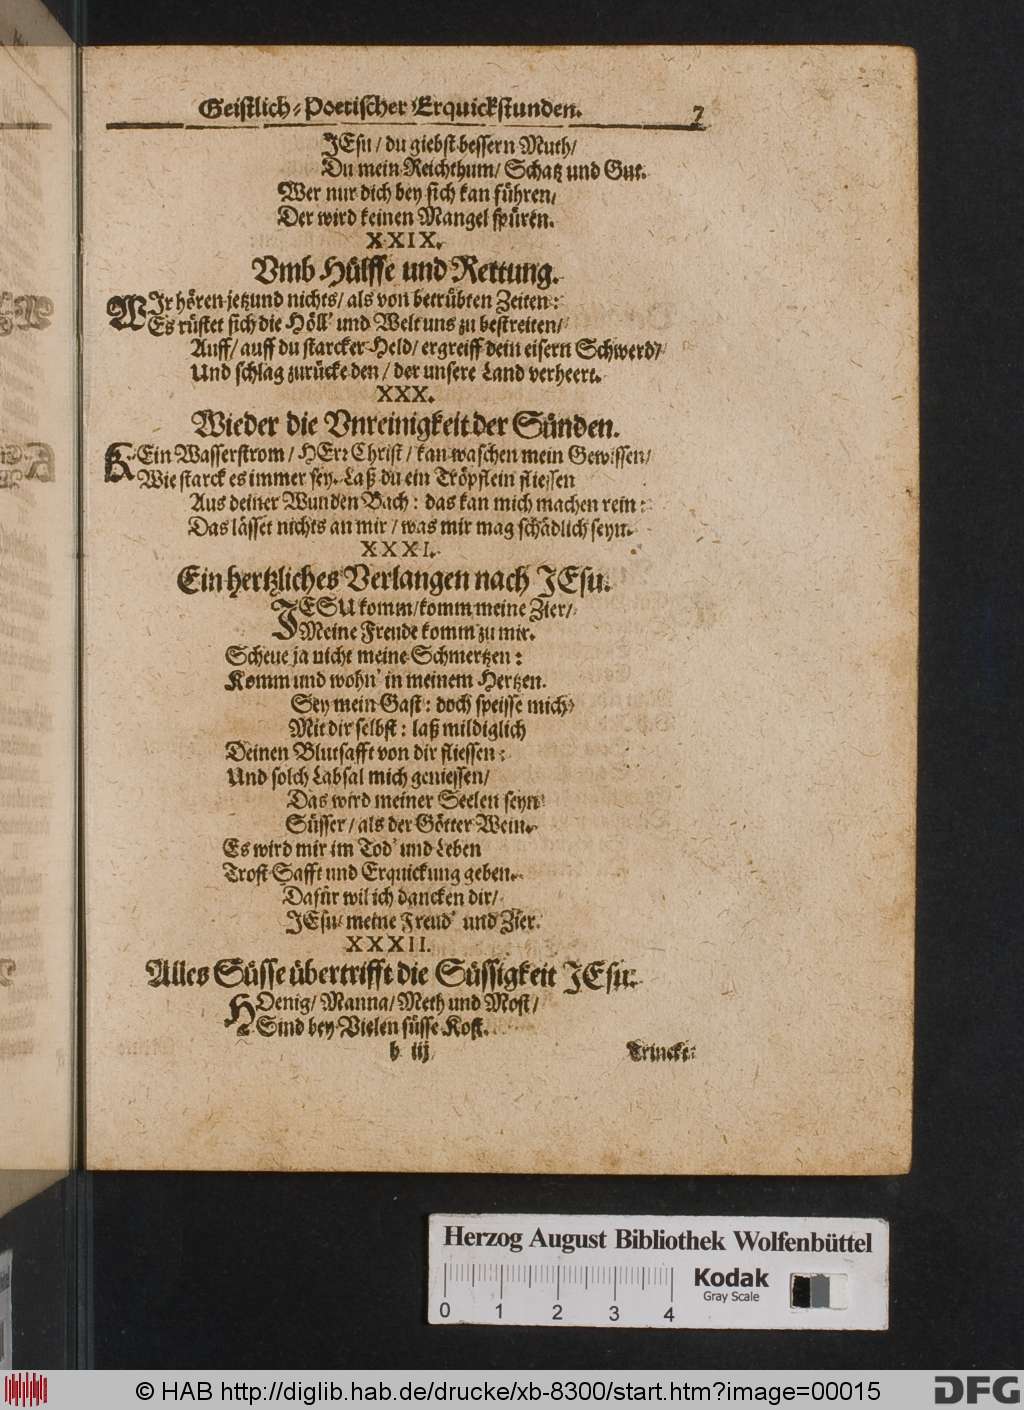 Geistlich-Poetischer Erquickstunden. 7
JEsu / du giebst bessern Muth /
Du mein Reichthum / Schatz und Gut.
Wer nur dich bey sich kan führen /
Der wird keinen Mangel spüren.
XXIX.
Vmb Hülffe und Rettung.
WIr hören jetzund nichts / als von betrübten Zeiten:
Es rüstet sich die Höll' und Welt uns zu bestreiten /
Auff / auff du starcker Held / ergreiff dein eisern Schwerd /
Und schlag zurücke den / der unsere Land verheert.
XXX.
Wieder die Vnreinigkeit der Sünden.
KEin Wasserstrom / HErr Christ / kan waschen mein Gewissen /
Wie starck es immer sey. Laß du ein Tröpflein fliessen
Aus deiner Wunden Bach: das kan mich machen rein:
Das lässet nichts an mir / was mir mag schädlich seyn.
XXXI.
Ein hertzliches Verlangen nach JEsu.
JESU komm / komm meine Zier /
Meine Freude komm zu mir.
Scheue ja nicht meine Schmertzen:
Komm und wohn' in meinem Hertzen.
Sey mein Gast: doch speisse mich
Mit dir selbst: laß mildiglich
Deinen Blutsafft von dir fliessen:
Und solch Labsal mich geniessen /
Das wird meiner Seelen seyn
Süsser / als der Götter Wein.
Es wird mir im Tod' und Leben
Trost-Safft und Erquickung geben.
Dafür wil ich dancken dir /
JEsu / meine Freud' und Zier.
XXXII.
Alles Süsse übertrifft die Süssigkeit JEsu.
HOenig / Manna / Meth und Most /
Sind bey Vielen süsse Kost.
b iij Trinckt
Herzog August Bibliothek Wolfenbüttel
Kodak
Gray Scale
0 1 2 3 4
© HAB http://diglib.hab.de/drucke/xb-8300/start.htm?image=00015
DFG